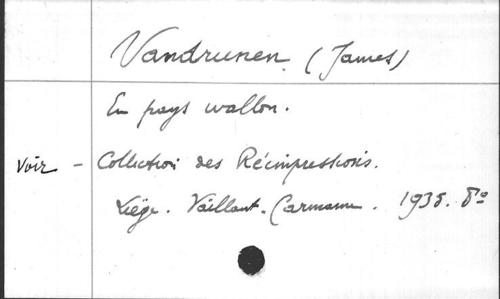 Vandrunen (James)
En pays wallon.
Voir - Collection des Réimpressions.
Liège. Vaillant-Carmanne. 1935. 8°